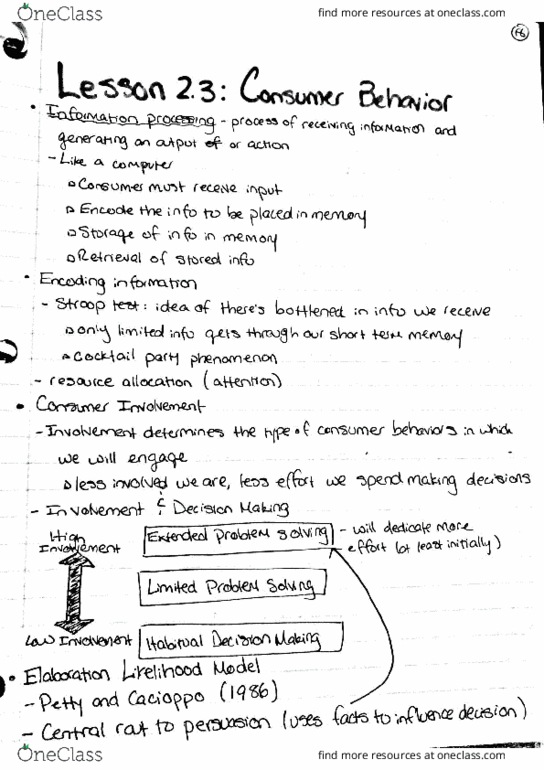 OneClass
find more resources at oneclass.com
Lesson 2.3: Consumer Behavior
• Information processing - process of receiving information and
generating an output of or action
- Like a computer
Consumer must receive input
Encode the info to be placed in memory
Storage of info in memory
Retrieval of stored info
• Encoding information
- Stroop test: idea of there's bottlened in info we receive
only limited info gets through our short term memory
Cocktail party phenomenon
- resource allocation (attention)
• Consumer Involvement
- Involvement determines the type of consumer behaviors in which
we will engage
less involved we are, less effort we spend making decisions
- Involvement & Decision Making
High Involvement
Extended Problem Solving
- will dedicate more
effort (at least initially)
Limited Problem Solving
Low Involvement
Habitual Decision Making
• Elaboration Likelihood Model
- Petty and Cacioppo (1986)
- Central rout to persuasion (uses facts to influence decision)
OneClass
find more resources at oneclass.com